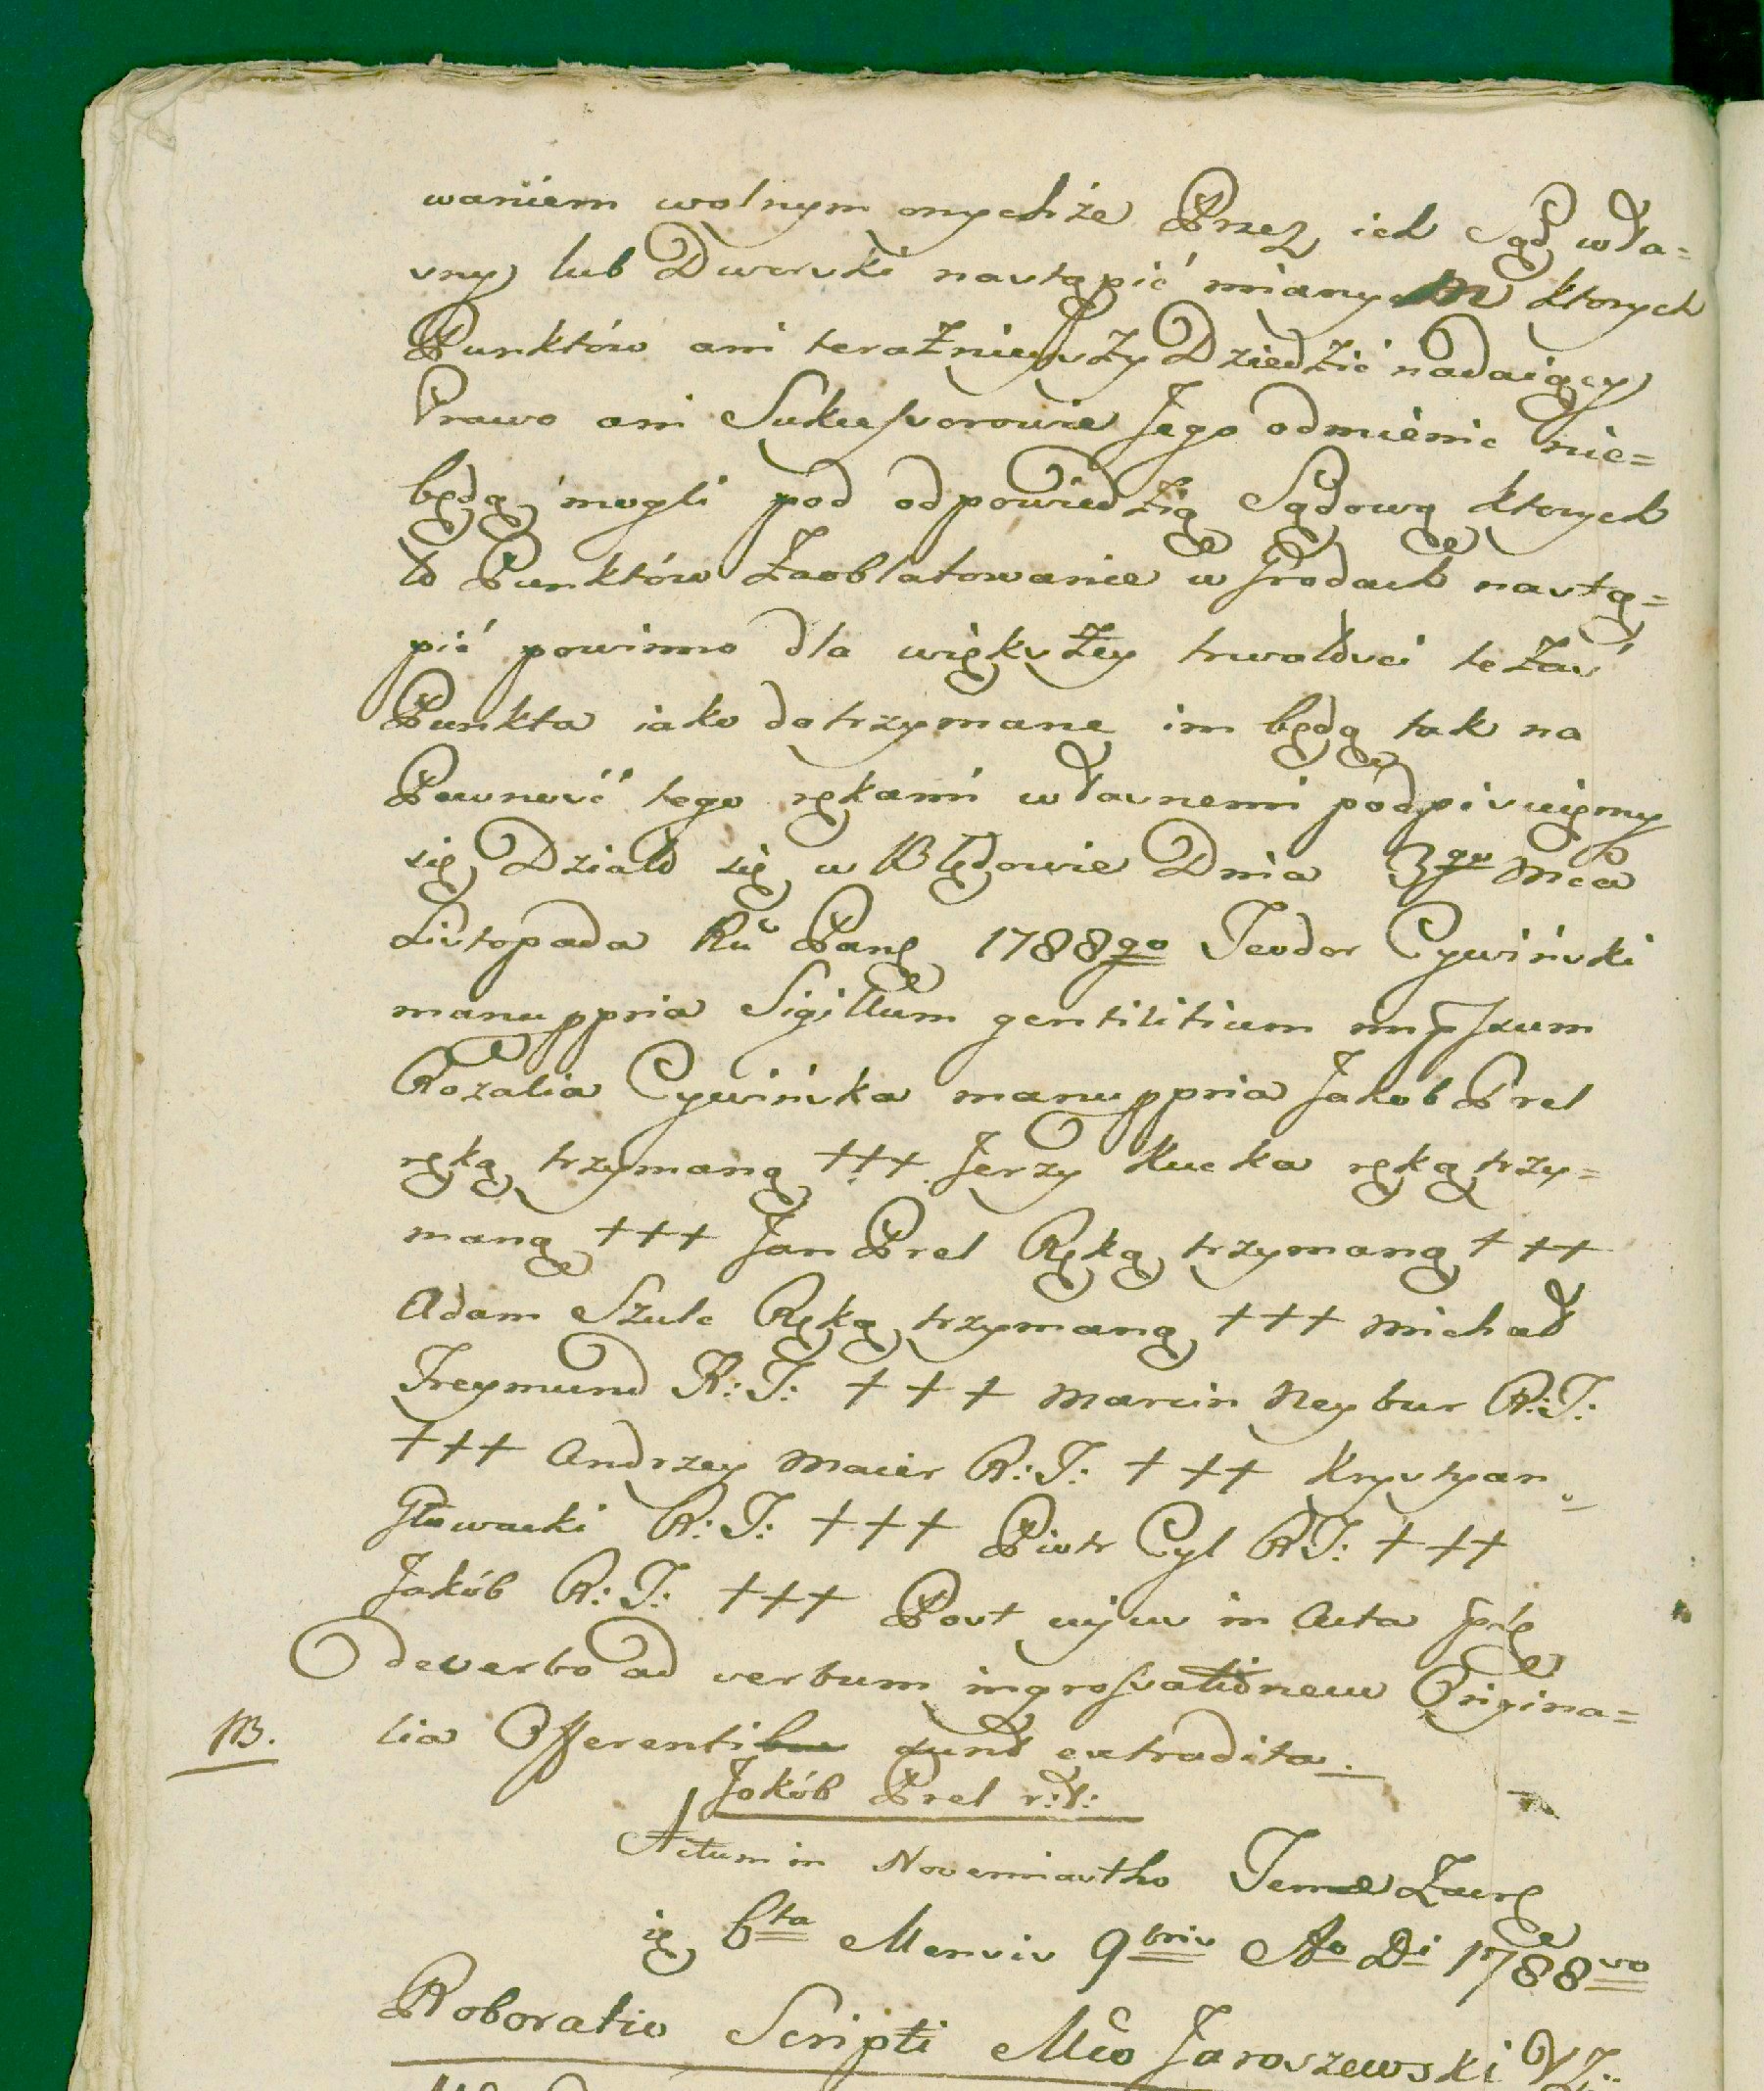 waniem wolnym onychże Przez ich Sąd wła=
sny lub Dworski nastąpić mianych ktorych
Punktów ani teraźnieyszy Dziedzić nadaiący
Prawo ani Sukcessorowie Jego odmienic nie=
będą mogli pod odpowiedzią Sądową ktorych
to Punktów Zaoblatowanie w Grodach nastą=
pić powinno dla większey trwałosci te zaś
Punkta iako dotrzymane im będą tak na
Pewność tego rękami własnemi podpisuięmy
się Działo się w Błędowie Dnia 3go Mca
Listopada Ru Pang 1788go Teodor Cywiński
manu ppria Sigillum gentilitium impssum
Rozalia Cywińska manu ppria Jakob Prel
ręką trzymaną +++ Jerzy Kucka ręką trzy=
maną +++ Jan Prel Ręką trzymaną +++
Adam Szulc Ręką trzymaną +++ Michał
Freymund R: T: +++ Marcin Neybur R: T:
+++ Andrzey Maier R: T: +++ Krystyan
Głowacki R: T: +++ Piotr Cyl R T: +++
Jakób R: T: +++ Post cujus in Acta
de verbo ad verbum ingrossationem Origina=
NB. lia Offerenti sunt extradita.
Jakób Prel r: t:
Actum in Novemiastho
6ta Mensis 9bris Ao Di 1788vo
Roboratio Scripti Mco Jaroszewski